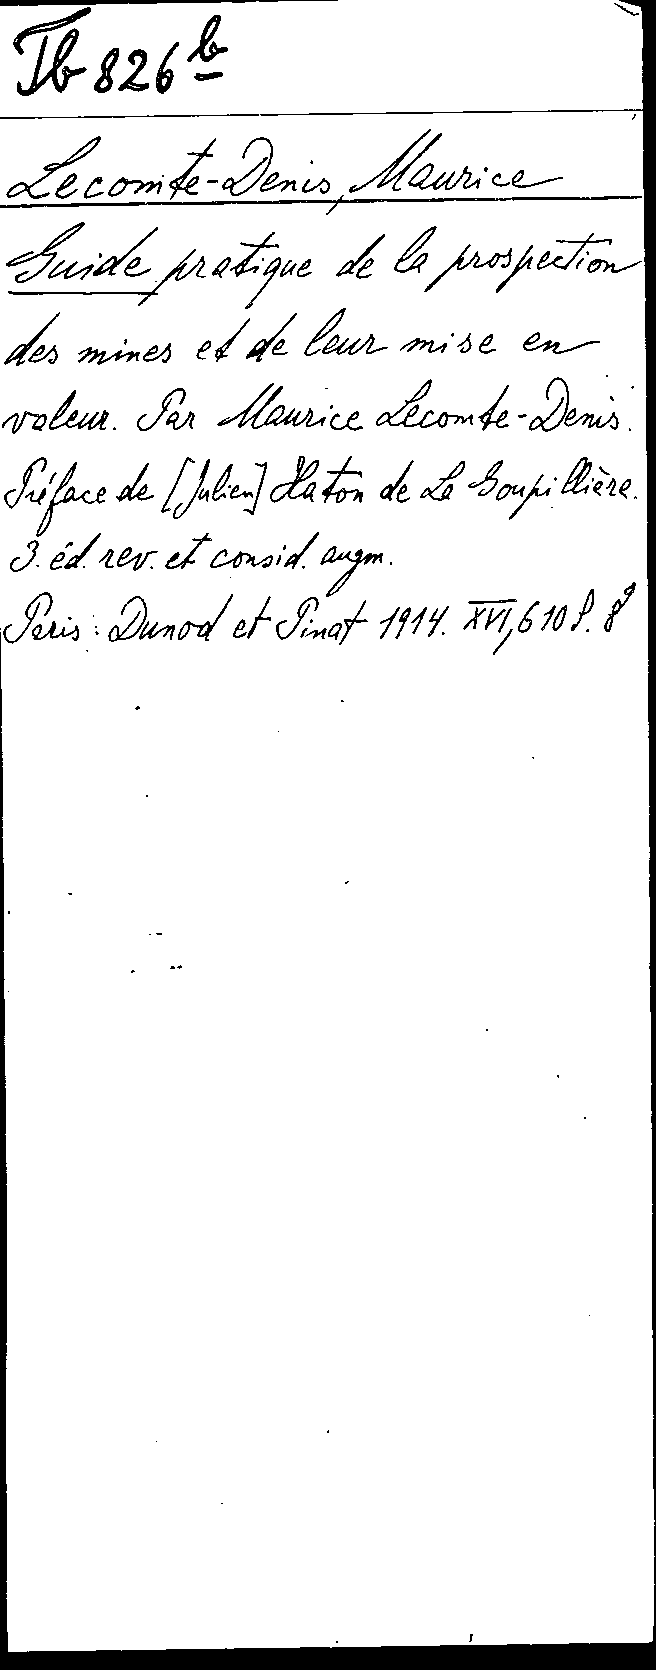 Tb 826 b
Lecomte-Denis, Maurice
Guide pratique de la prospection
des mines et de leur mise en
valeur. Par Maurice Lecomte-Denis.
Préface de [Julien] Haton de La Goupillière.
3. éd. rev. et consid. augm.
Paris: Dunod et Pinat 1914. XVI, 610 S. 8°